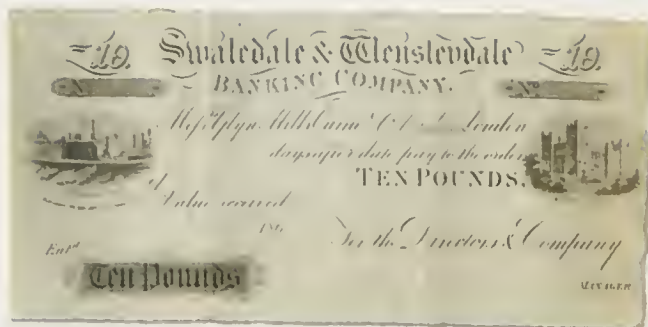 10. Swaledale & Wensleydale 10.
BANKING COMPANY.
No No
Messrs Glyn, Mills & Co. London
days after date pay to the order
TEN POUNDS,
of
Value received
186
For the Directors & Company
Entd
Ten Pounds
MANAGER